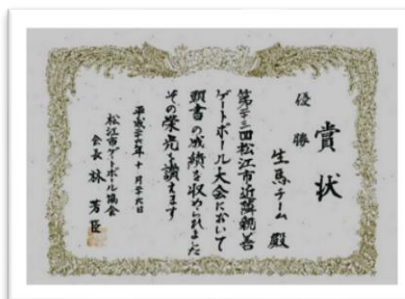 賞状
優勝
生馬チーム 殿
第廿三回松江市近隣親善
ゲートボール大会において
頭書の成績を収められました
その栄光を讃えます
平成廿六年十月廿六日
松江市ゲートボール協会
会長 林 芳臣